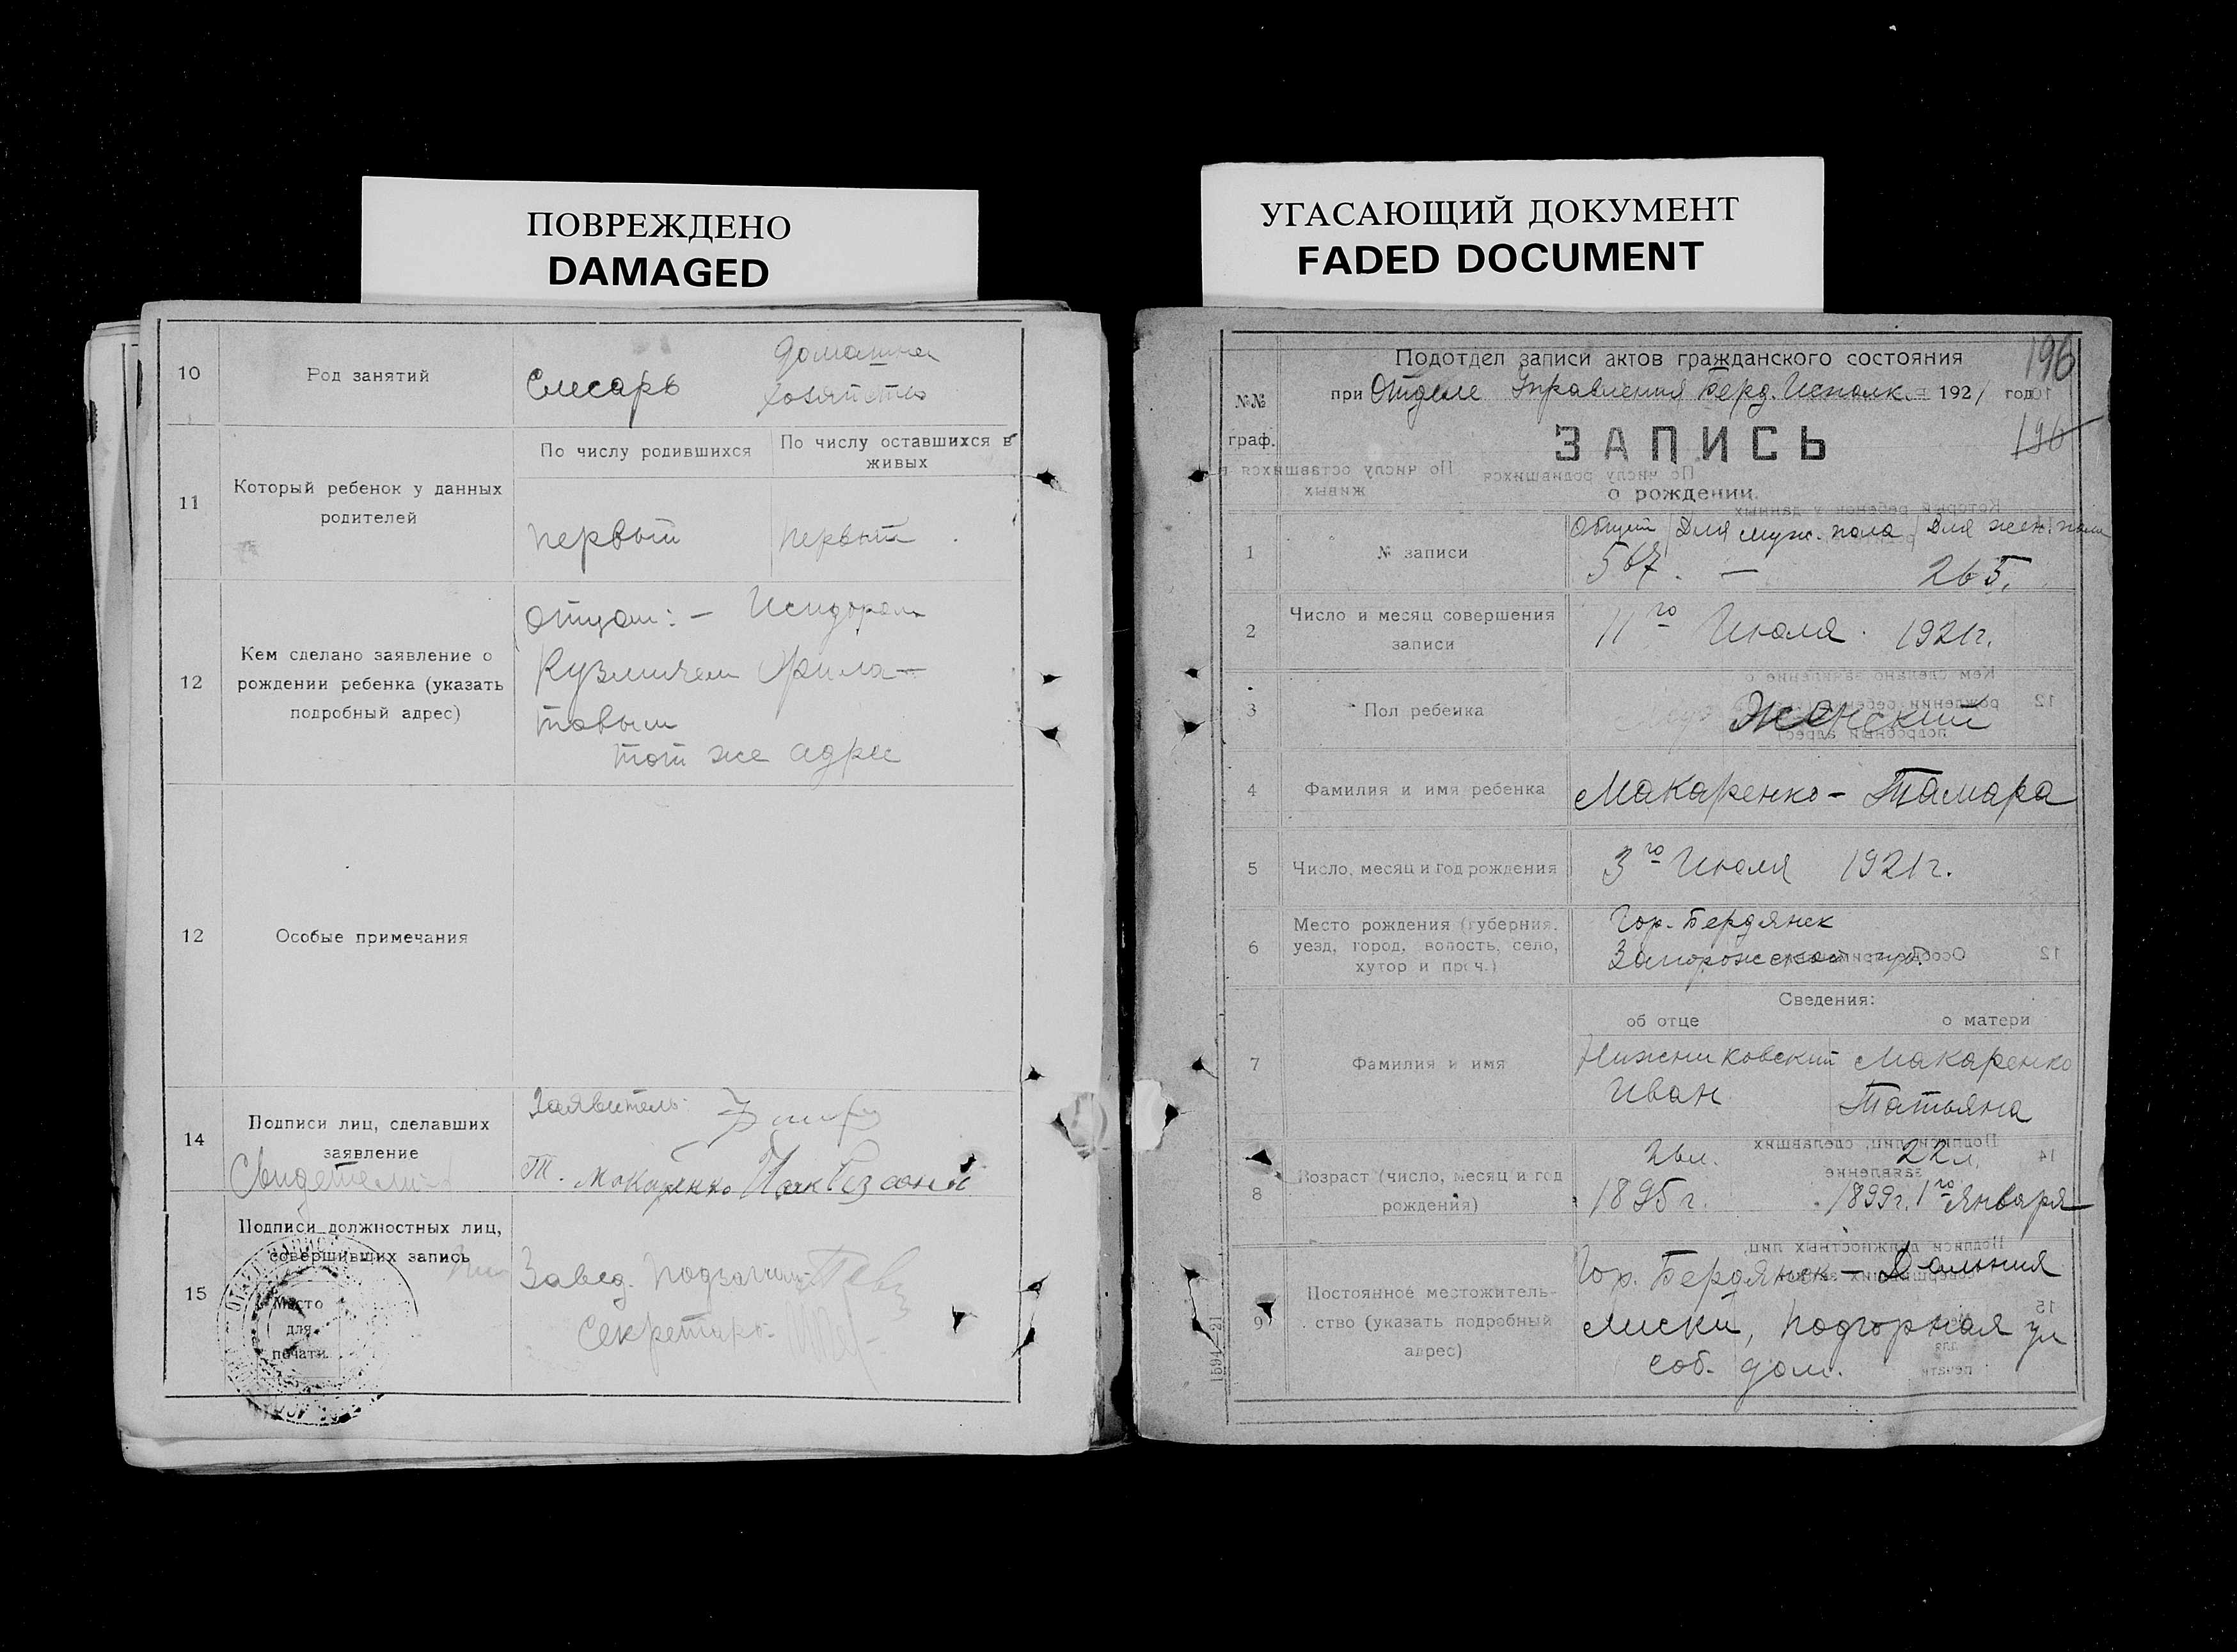 ПОВРЕЖДЕНО
DAMAGED
10
Род занятий
Слесарь
домашнее
хозяйство
11
Который ребенок у данных
родителей
По числу родившихся
По числу оставшихся в
живых
первый
первый
12
Кем сделано заявление о
рождении ребенка (указать
подробный адрес)
отцом: – Исидором
Кузмичем
товым
тот же адрес
12
Особые примечания
14
Подписи лиц, сделавших
заявление
Свидетели
Заявитель
Т. Макаренко
15
Подписи должностных лиц,
совершивших запись
Место
для
печати
Завед.
Секретарь
УГАСАЮЩИЙ ДОКУМЕНТ
FADED DOCUMENT
196
Подотдел записи актов гражданского состояния
№№
граф.
при Отделе Управления Берд. Исполк. 1921 год
196
ЗАПИСЬ
о рождении.
1
№ записи
Общий Для муж. пола Для жен. пола
567. — 265.
2
Число и месяц совершения
записи
11го Июля 1921г.
3
Пол ребенка
Женский
4
Фамилия и имя ребенка
Макаренко – Тамара
5
Число, месяц и год рождения
3го Июля 1921г.
6
Место рождения (губерния,
уезд, город, волость, село,
хутор и проч.)
Гор. Бердянск
Запорожской губ.
Сведения:
об отце
о матери
7
Фамилия и имя
Нижниковский
Иван
Макаренко
Татьяна
8
Возраст (число, месяц и год
рождения)
26л.
1895г.
22л.
1899г. 1го Января
9
Постоянное местожитель-
ство (указать подробный
адрес)
Гор. Бердянск – Дальния
Лиски, Подгорная ул
соб. дом.
1594—21